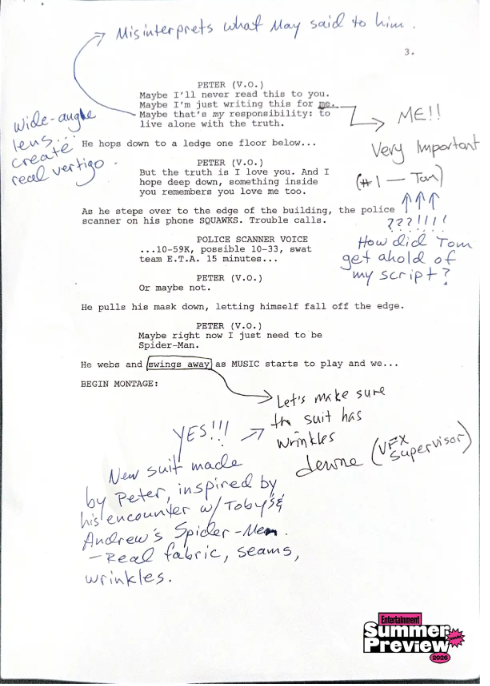 Misinterprets what May said to him.
3.
PETER (V.O.)
Maybe I'll never read this to you.
Maybe I'm just writing this for me.
Maybe that's my responsibility: to
live alone with the truth.
wide-angle
lens...
create
real vertigo.
ME!!
Very Important
(#1 — Tom)
???!!!!
How did Tom
get ahold of
my script?
He hops down to a ledge one floor below...
PETER (V.O.)
But the truth is I love you. And I
hope deep down, something inside
you remembers you love me too.
As he steps over to the edge of the building, the police
scanner on his phone SQUAWKS. Trouble calls.
POLICE SCANNER VOICE
...10-59K, possible 10-33, swat
team E.T.A. 15 minutes...
PETER (V.O.)
Or maybe not.
He pulls his mask down, letting himself fall off the edge.
PETER (V.O.)
Maybe right now I just need to be
Spider-Man.
He webs and swings away as MUSIC starts to play and we...
BEGIN MONTAGE:
Let's make sure
the suit has
wrinkles
(VFX
Supervisor)
YES!!!
New suit made
by Peter, inspired by
his encounter w/ Toby's &
Andrew's Spider-Men.
- Real fabric, seams,
wrinkles.
Entertainment
Summer
Preview
2026